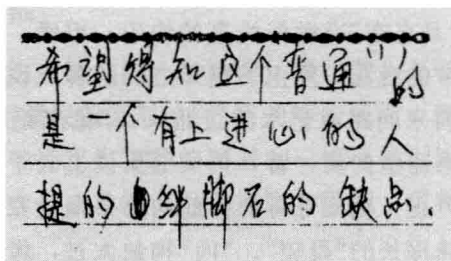 希望得知这个普通"的
是一个有上进心的人
提的绊脚石的缺点.